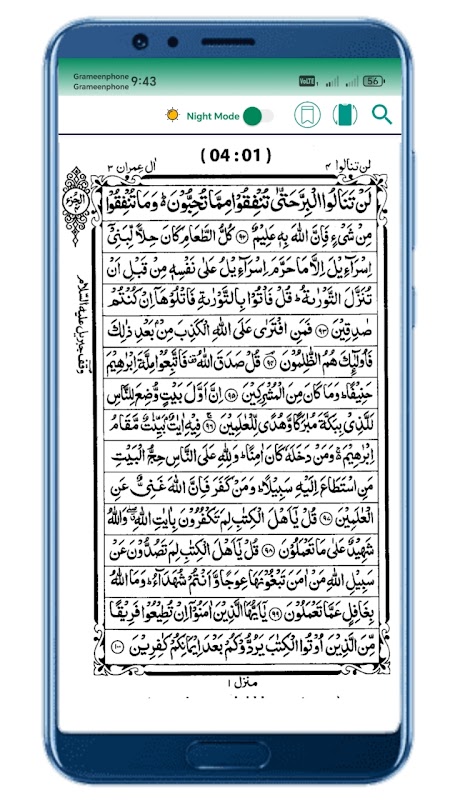 Grameenphone
Grameenphone 9:43
VoLTE
56
Night Mode
(04:01)
لن تنالوا ۴
اٰل عمرٰن ۳
لَنْ تَنَالُوا الْبِرَّ حَتّٰى تُنْفِقُوْا مِمَّا تُحِبُّوْنَ ؕ وَمَا تُنْفِقُوْا
مِنْ شَیْءٍ فَاِنَّ اللّٰهَ بِهٖ عَلِیْمٌ ﴿۹۲﴾ كُلُّ الطَّعَامِ كَانَ حِلًّا لِّبَنِیْۤ
اِسْرَآءِیْلَ اِلَّا مَا حَرَّمَ اِسْرَآءِیْلُ عَلٰى نَفْسِهٖ مِنْ قَبْلِ اَنْ
تُنَزَّلَ التَّوْرٰىةُ ؕ قُلْ فَاْتُوْا بِالتَّوْرٰىةِ فَاتْلُوْهَاۤ اِنْ كُنْتُمْ
صٰدِقِیْنَ ﴿۹۳﴾ فَمَنِ افْتَرٰى عَلَى اللّٰهِ الْكَذِبَ مِنْۢ بَعْدِ ذٰلِكَ
فَاُولٰٓئِكَ هُمُ الظّٰلِمُوْنَ ﴿۹۴﴾ قُلْ صَدَقَ اللّٰهُ فَاتَّبِعُوْا مِلَّةَ اِبْرٰهِیْمَ
حَنِیْفًا ؕ وَمَا كَانَ مِنَ الْمُشْرِكِیْنَ ﴿۹۵﴾ اِنَّ اَوَّلَ بَیْتٍ وُّضِعَ لِلنَّاسِ
لَلَّذِیْ بِبَكَّةَ مُبٰرَكًا وَّهُدًى لِّلْعٰلَمِیْنَ ﴿۹۶﴾ فِیْهِ اٰیٰتٌۢ بَیِّنٰتٌ مَّقَامُ
اِبْرٰهِیْمَ ۚ وَمَنْ دَخَلَهٗ كَانَ اٰمِنًا ؕ وَلِلّٰهِ عَلَى النَّاسِ حِجُّ الْبَیْتِ
مَنِ اسْتَطَاعَ اِلَیْهِ سَبِیْلًا ؕ وَمَنْ كَفَرَ فَاِنَّ اللّٰهَ غَنِیٌّ عَنِ
الْعٰلَمِیْنَ ﴿۹۷﴾ قُلْ یٰۤاَهْلَ الْكِتٰبِ لِمَ تَكْفُرُوْنَ بِاٰیٰتِ اللّٰهِ وَاللّٰهُ
شَهِیْدٌ عَلٰى مَا تَعْمَلُوْنَ ﴿۹۸﴾ قُلْ یٰۤاَهْلَ الْكِتٰبِ لِمَ تَصُدُّوْنَ عَنْ
سَبِیْلِ اللّٰهِ مَنْ اٰمَنَ تَبْغُوْنَهَا عِوَجًا وَّاَنْتُمْ شُهَدَآءُ ؕ وَمَا اللّٰهُ
بِغَافِلٍ عَمَّا تَعْمَلُوْنَ ﴿۹۹﴾ یٰۤاَیُّهَا الَّذِیْنَ اٰمَنُوْۤا اِنْ تُطِیْعُوْا فَرِیْقًا
مِّنَ الَّذِیْنَ اُوْتُوا الْكِتٰبَ یَرُدُّوْكُمْ بَعْدَ اِیْمَانِكُمْ كٰفِرِیْنَ ﴿۱۰۰﴾
الجزء
وقف جبريل عليه السلام
منزل ۱